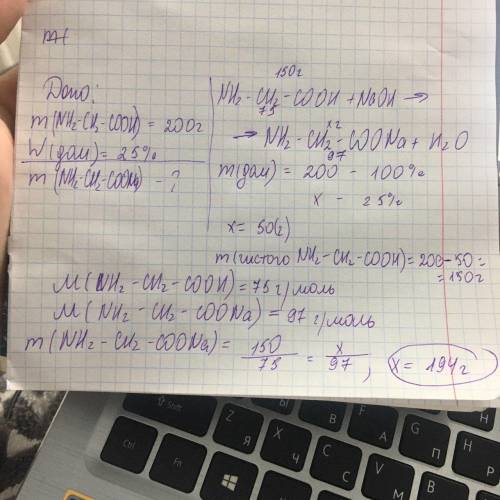 Дано:
m(NH₂-CH₂-COOH) = 200г
W(дом) = 25%
m(NH₂-CH₂-COONa) - ?
150г
NH₂-CH₂-COOH + NaOH →
75
x г
→ NH₂-CH₂-COONa + H₂O
97
m(дом) = 200 - 100%
x - 25%
x = 50(г)
m(чистого NH₂-CH₂-COOH) = 200-50 =
= 150г
M(NH₂-CH₂-COOH) = 75 г/моль
M(NH₂-CH₂-COONa) = 97 г/моль
m(NH₂-CH₂-COONa) = 150/75 = x/97, x = 194г
Shift
Ctrl
Fn
Z Я
X Ч
C С
V М
B И
F А
G П